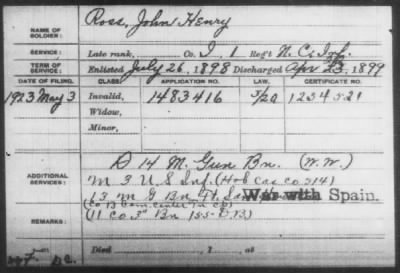 NAME OF SOLDIER: Ross, John Henry
SERVICE: Late rank, Co. I, 1 Reg't N. C. Inf.
TERM OF SERVICE: Enlisted July 26, 1898 Discharged Apr 23, 1899
DATE OF FILING. CLASS. APPLICATION NO. CERTIFICATE NO.
1923 May 3 Invalid, 1483416 1234521
Widow,
Minor,
D 14 M. Gun Bn. (W.W.)
ADDITIONAL SERVICES: M 3 U S Inf. (Hosp Cas co 214)
13 M G Bn War with Spain.
REMARKS: (11 Co 3" Bn 155 D.B.)
Died , 1 , at